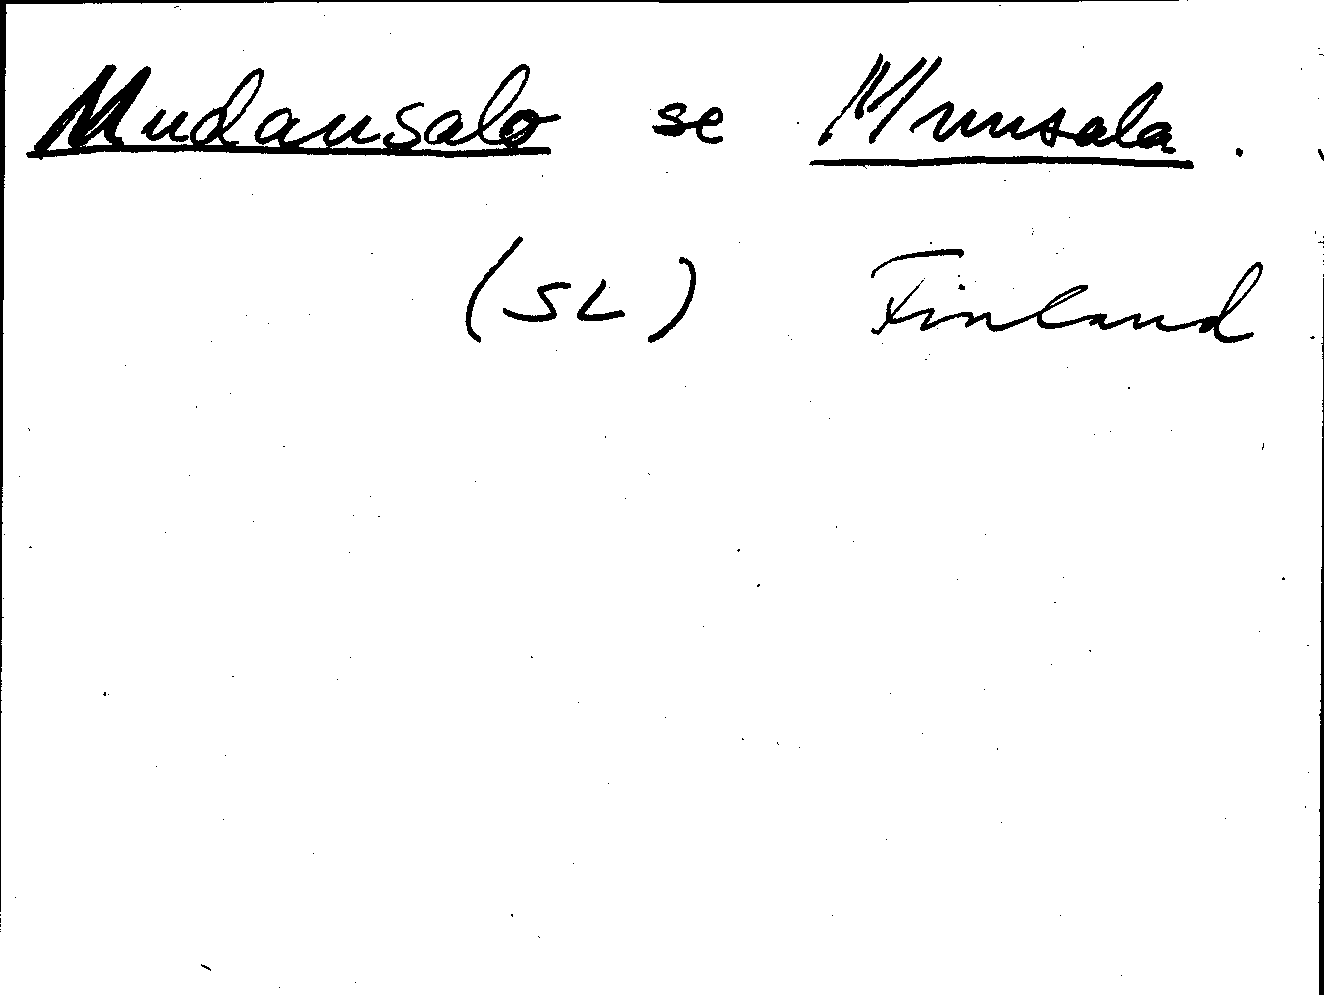 Mudansalo se Munsala.
(SL) Finland